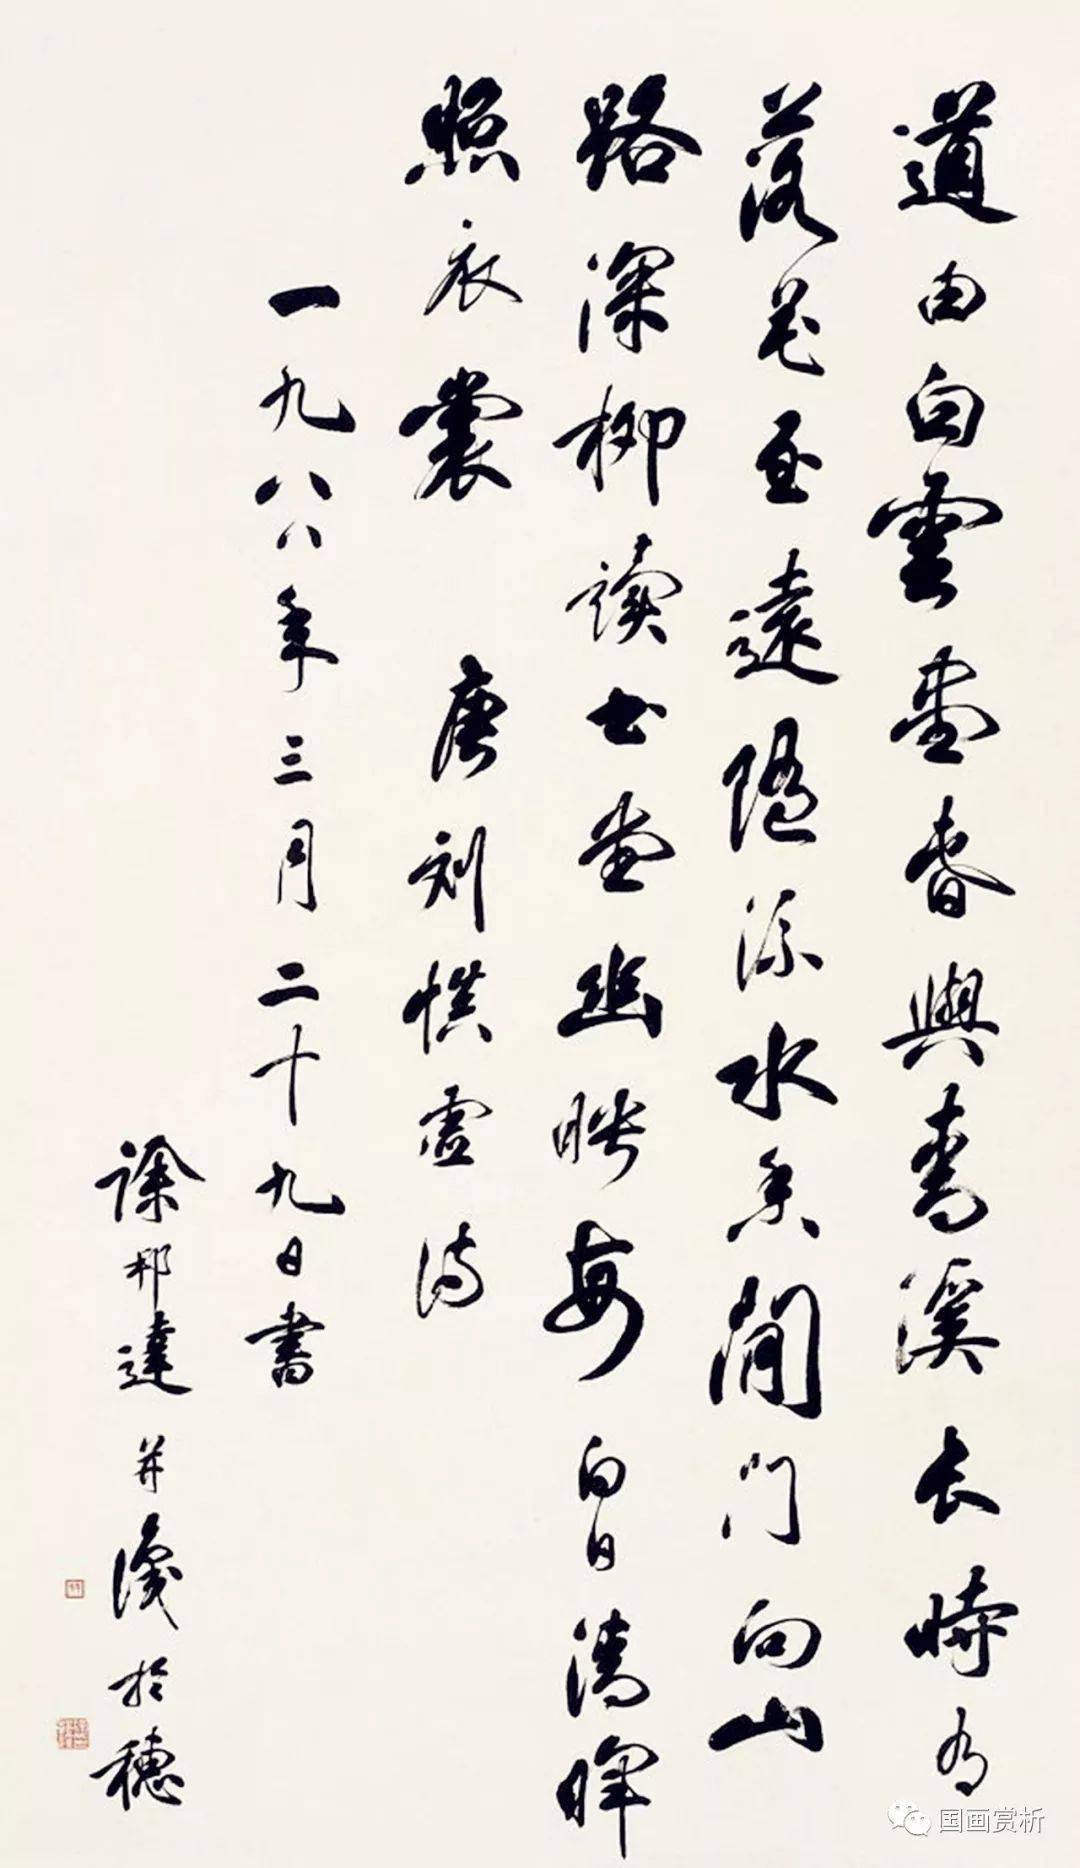 道由白雲盡春與青溪長時有
落花至遠隨流水香閒門向山
路深柳讀书堂幽映每白日清暉
照衣裳 唐刘慎虛詩
一九八八年三月二十九日書
徐邦達并識於穗
国画赏析